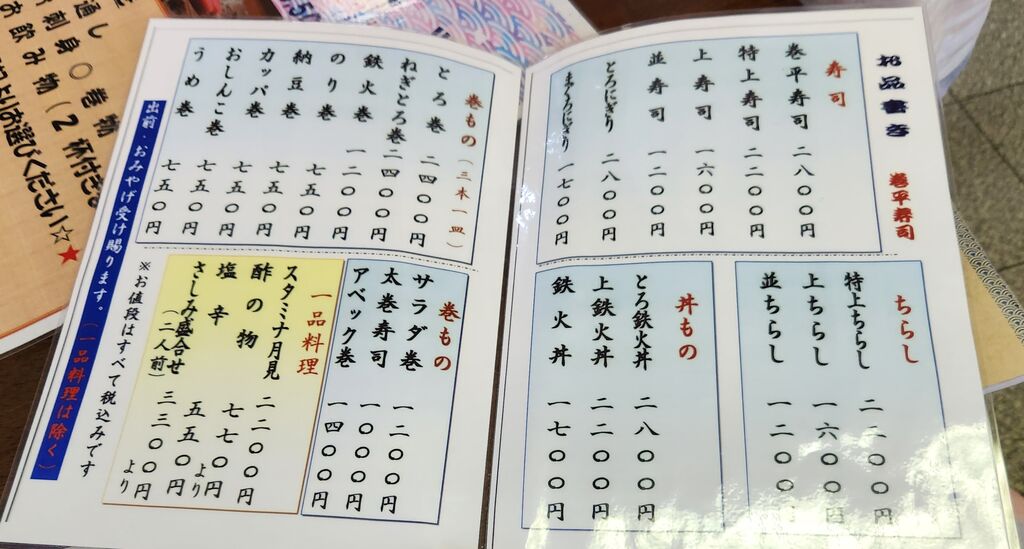 お品書き
巻平寿司
寿司
巻平寿司 二八〇〇円
特上寿司 二二〇〇円
上寿司 一六〇〇円
並寿司 一二〇〇円
とろにぎり 二八〇〇円
まぐろにぎり 一七〇〇円
ちらし
特上ちらし 二二〇〇円
上ちらし 一六〇〇円
並ちらし 一二〇〇円
丼もの
とろ鉄火丼 二八〇〇円
上鉄火丼 二二〇〇円
鉄火丼 一七〇〇円
巻もの(三本一皿)
とろ巻 二四〇〇円
ねぎとろ巻 二四〇〇円
鉄火巻 一二〇〇円
のり巻 七五〇円
納豆巻 七五〇円
カッパ巻 七五〇円
おしんこ巻 七五〇円
うめ巻 七五〇円
巻もの
サラダ巻 一二〇〇円
太巻寿司 一〇〇〇円
アベック巻 一四〇〇円
一品料理
スタミナ月見 二二〇〇円
酢の物 七七〇円より
塩辛 五五〇円
さしみ盛合せ(二人前) 三三〇〇円より
※お値段はすべて税込みです
出前・おみやげ受け賜ります。(一品料理は除く)
通し
刺身〇巻物
お飲み物(2杯付き
上よりお選びください☆★